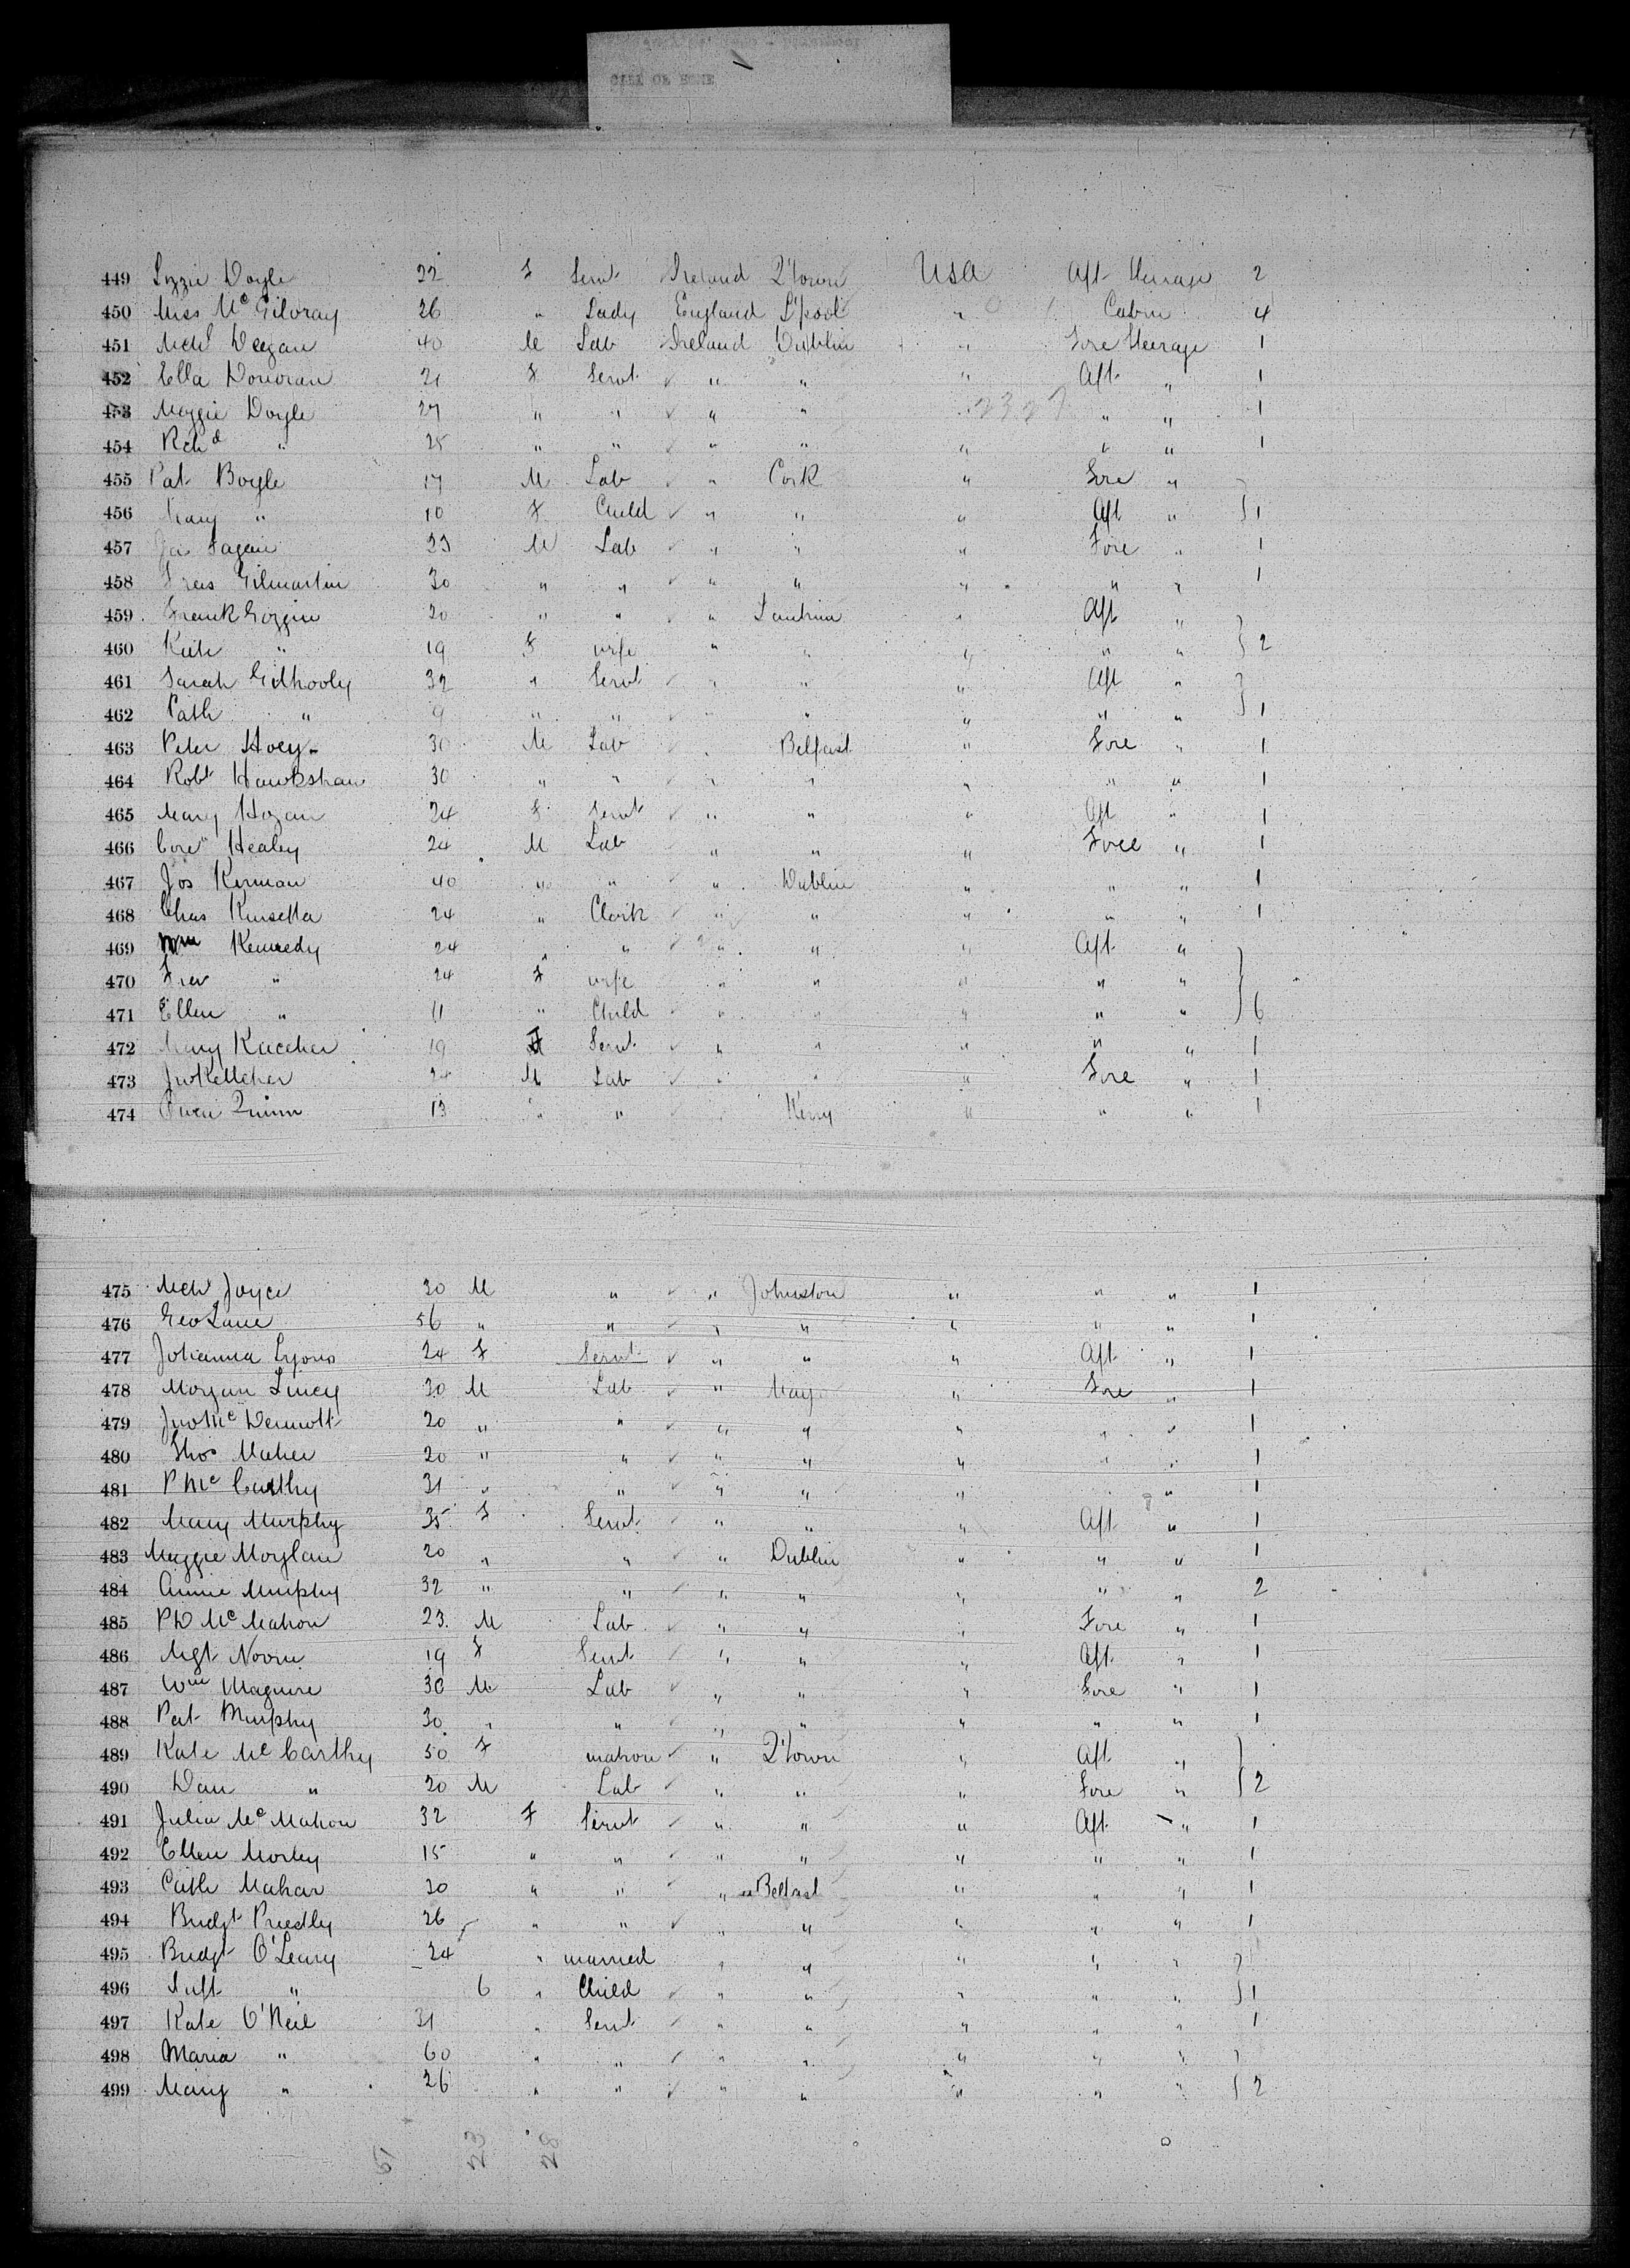 CITY OF ROME
449 Lizzie Doyle 22 F Servt Ireland Q'town USA Aft Steerage 2
450 Miss McGilvray 26 " Lady England L'pool " Cabin 4
451 Mchl Deegan 40 M Lab Ireland Dublin " Fore Steerage 1
452 Ella Donovan 21 F Servt " " " Aft " 1
453 Maggie Doyle 27 " " " " " " " 1
2327
454 Rchd " 25 " " " " " " " 1
455 Pat Boyle 17 M Lab " Cork " Fore "
456 Mary " 10 F Child " " " Aft " } 1
457 Jas Fagan 23 M Lab " " " Fore " 1
458 Fras Gilmartin 30 " " " " " " " 1
459 Frank Goggin 20 " " " " Aft "
460 Kate " 19 F wife " " " " " } 2
461 Sarah Gilhooly 32 " Servt " " " Aft "
462 Path " 9 " " " " " " " } 1
463 Peter Hoey 30 M Lab " Belfast " Fore " 1
464 Robt Hawkshaw 30 " " " " " " " 1
465 Mary Hogan 24 F Servt " " " Aft " 1
466 Cors Healey 24 M Lab " " " Fore " 1
467 Jos Kernan 40 " " " Dublin " " " 1
468 Chas Kinsella 24 " Clerk " " " " " 1
469 Wm Kennedy 24 " " " " " Aft "
470 " 24 F wife " " " " "
471 Ellen " 11 " Child " " " " " } 6
472 Mary 19 F Servt " " " " " 1
473 Jno Kelleher 24 M Lab " " " Fore " 1
474 Owen Quinn 13 " " " Kerry " " " 1
475 Mchl Joyce 30 M " " Johnston " " " 1
476 Geo Lane 56 " " " " " " " 1
477 Johanna Lyons 24 F Servt " " " Aft " 1
478 Morgan Lucey 30 M Lab " Mayo " Fore " 1
479 Jno McDermott 20 " " " " " " " 1
480 Thos Maher 20 " " " " " " " 1
481 P McCarthy 31 " " " " " " " 1
482 Mary Murphy 35 F Servt " " " Aft " 1
483 Maggie Moylan 20 " " " Dublin " " " 1
484 Annie Murphy 32 " " " " " " " 2
485 Pk McMahon 23 M Lab " " " Fore " 1
486 Mgt Noone 19 F Servt " " " Aft " 1
487 Wm Maguire 30 M Lab " " " Fore " 1
488 Pat Murphy 30 " " " " " " " 1
489 Kate McCarthy 50 F matron " Q'town " Aft "
490 Dan " 20 M Lab " " " Fore " } 2
491 Julia McMahon 32 F Servt " " " Aft " 1
492 Ellen Morley 15 " " " " " " " 1
493 Cath Mahar 30 " " " Belfast " " " 1
494 Bridgt Priestly 26 " " " " " " " 1
495 Bridgt O'Leary 24 " married " " " " "
496 " 6 " Child " " " " " } 1
497 Kate O'Neil 31 " Servt " " " " " 1
498 Maria " 60 " " " " " " "
499 Mary " 26 " " " " " " " } 2
5 23 28